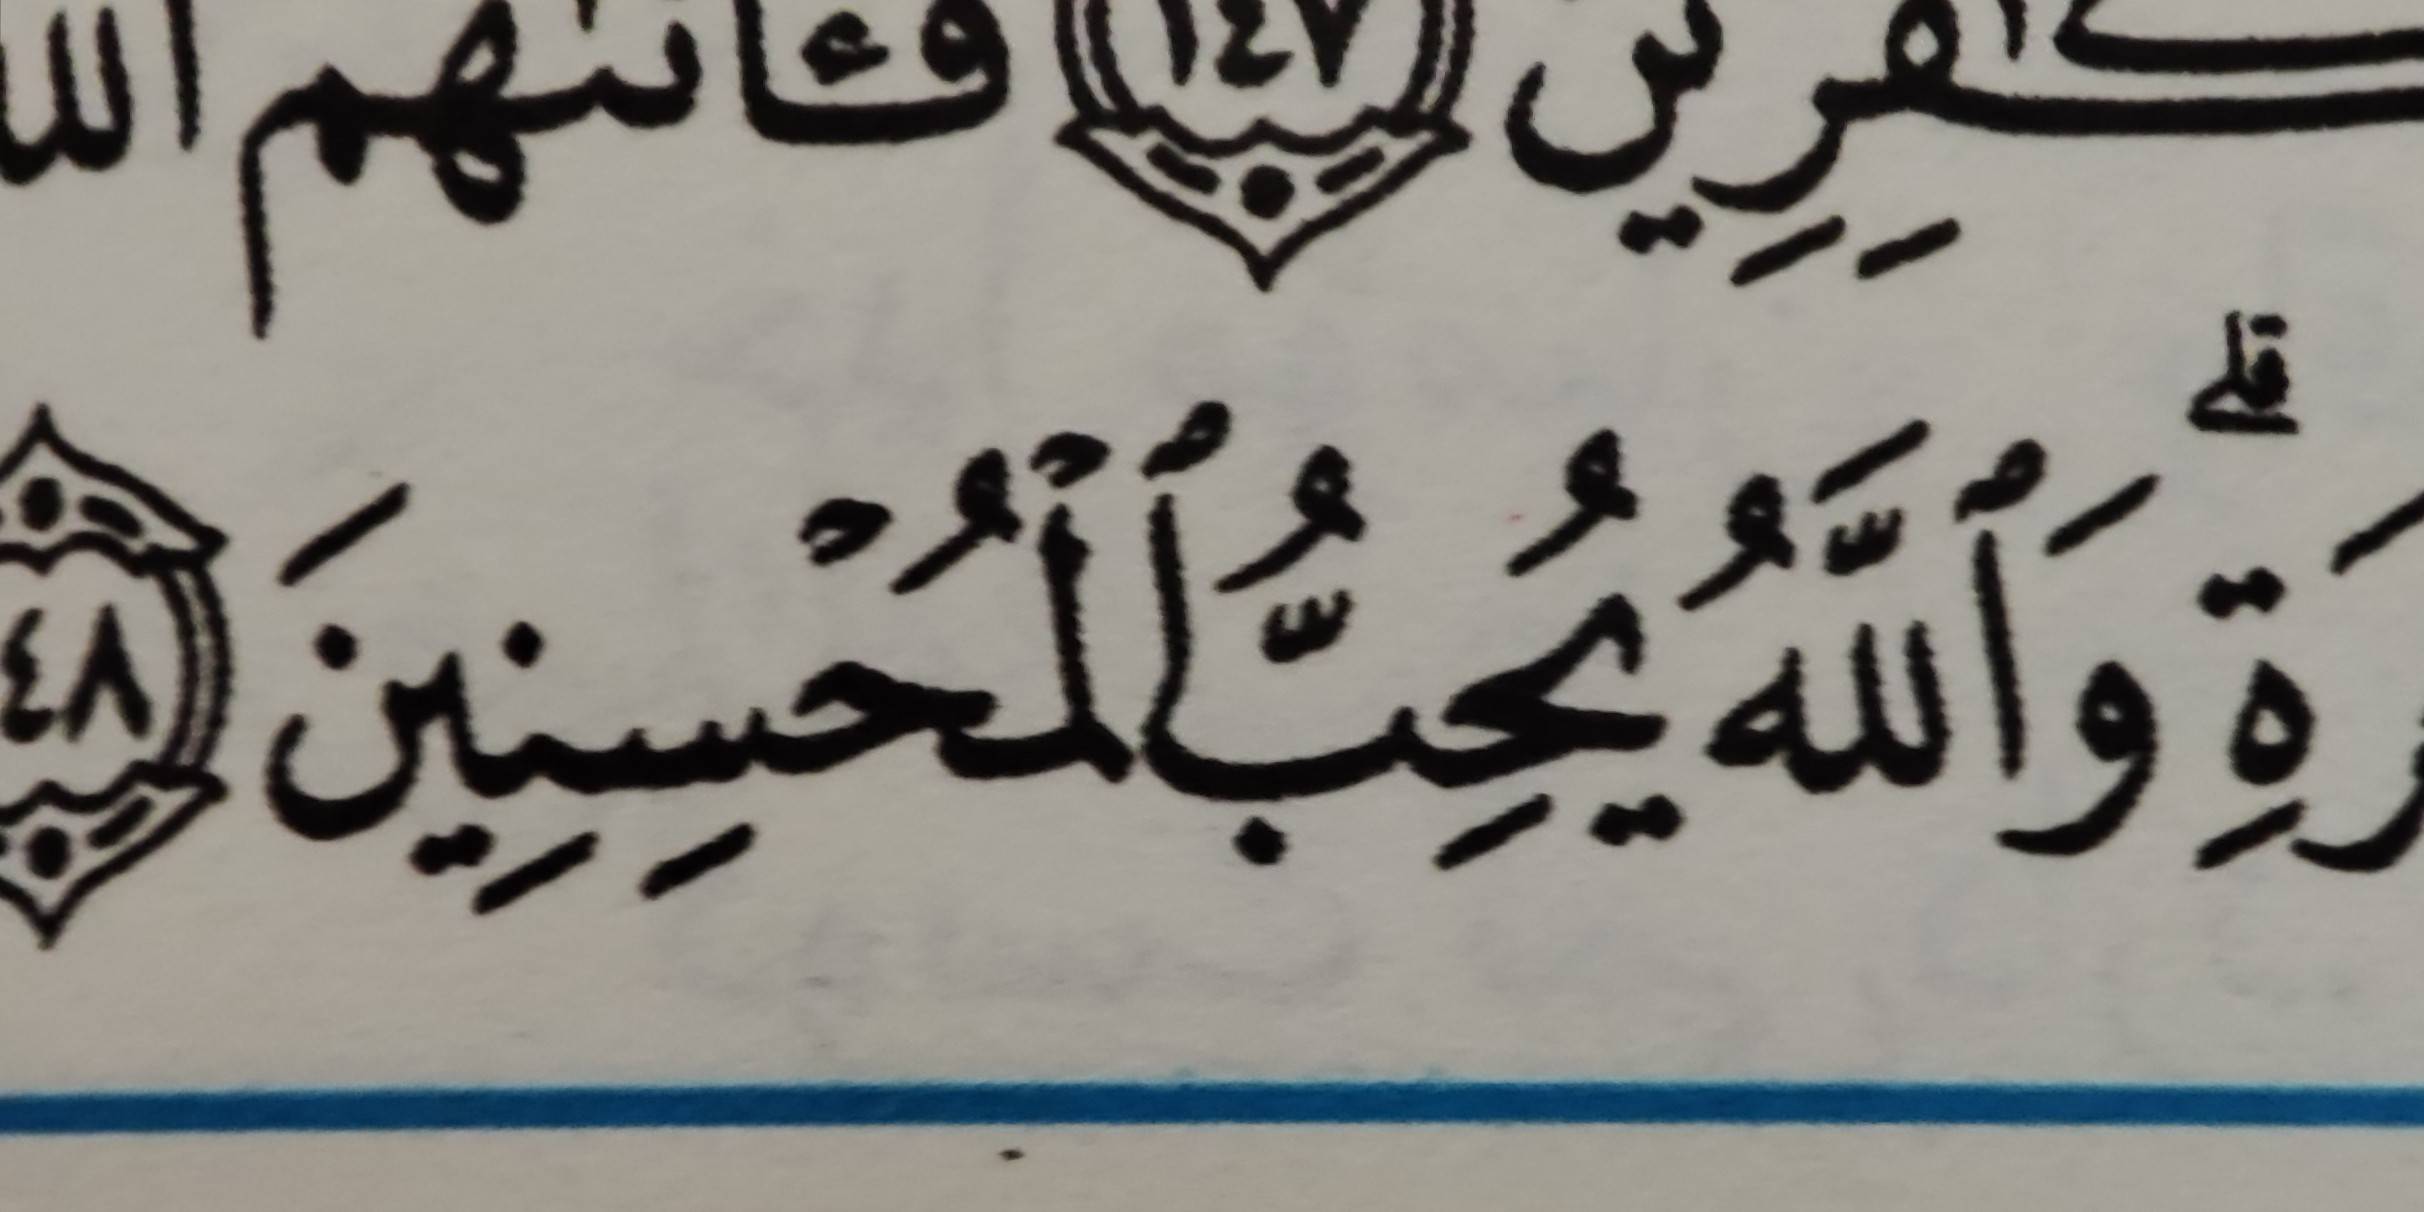 ـكَـٰفِرِينَ ١٤٧ فَـَٔاتَىٰهُمُ ٱللَّـ
ـرَةِ ۗ وَٱللَّهُ يُحِبُّ ٱلْمُحْسِنِينَ ١٤٨